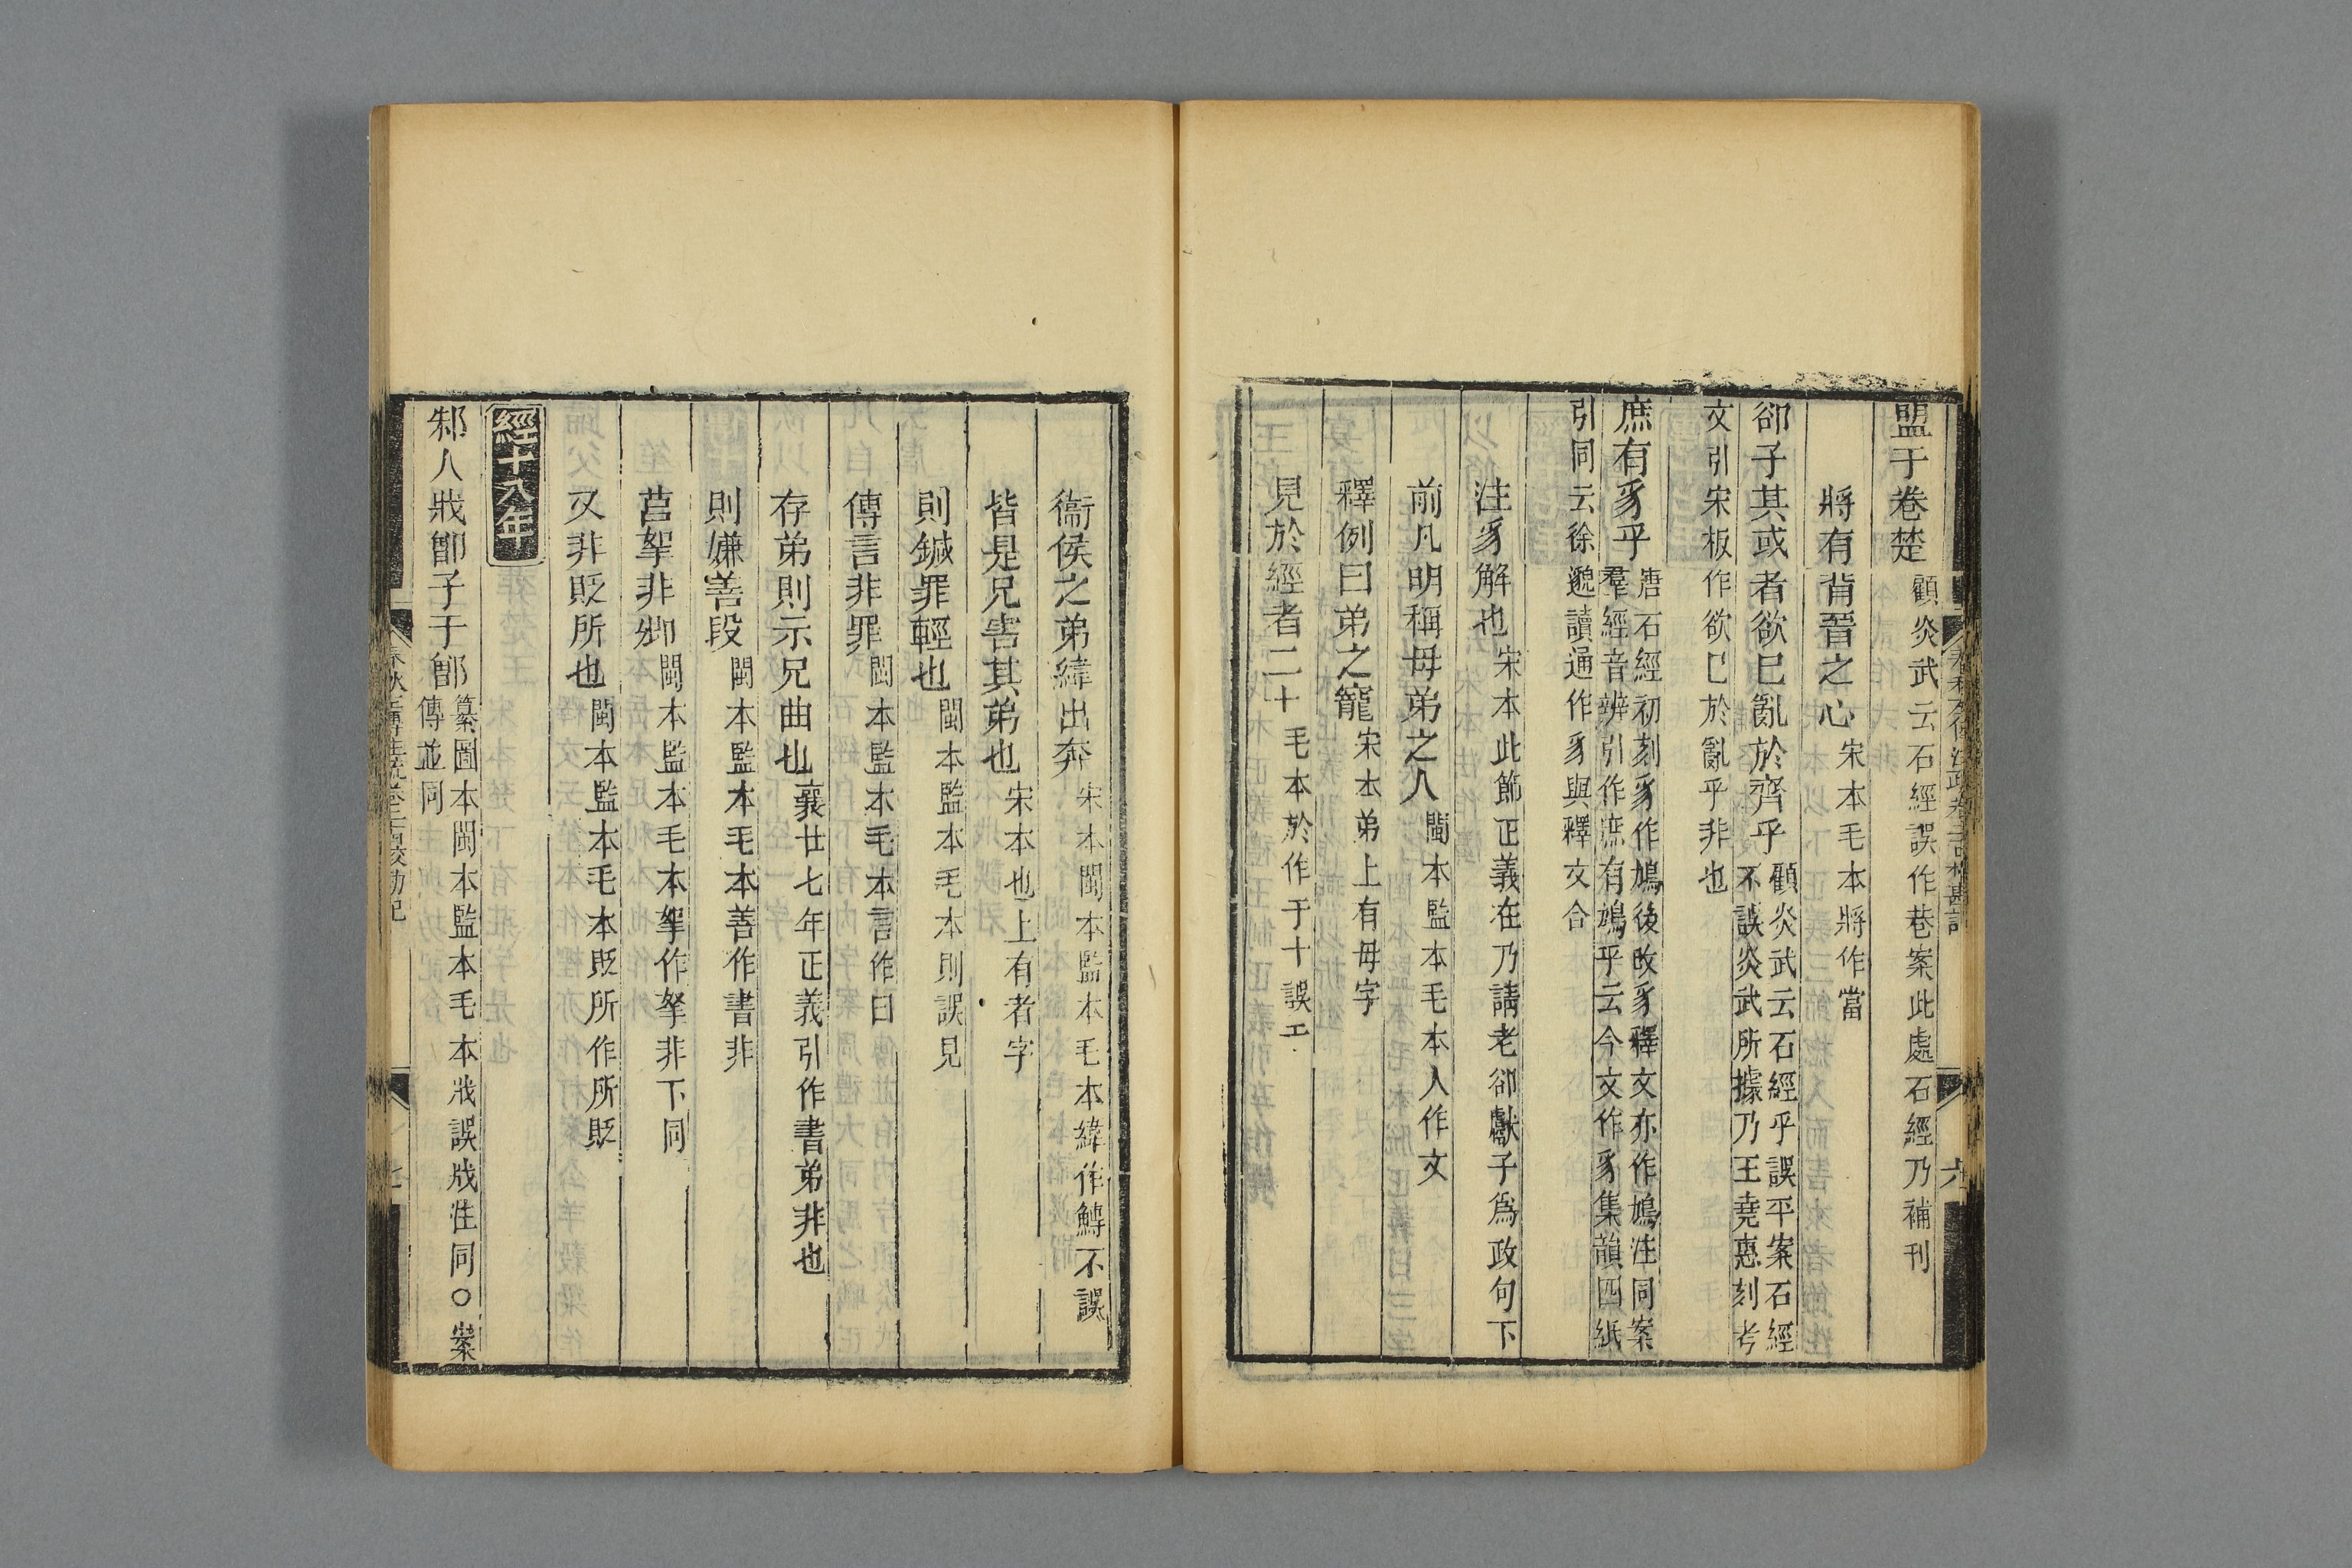 盟于卷楚顧炎武云石經誤作巷案此處石經乃補刊
將有背晉之心宋本毛本將作當
郤子其或者欲已亂於齊乎顧炎武云石經乎誤平案石經
不誤炎武所據乃王堯惠刻考
文引宋板作欲已於亂乎非也
庶有豸乎唐石經初刻豸作鳩後改豸釋文亦作鳩注同案
羣經音辨引作庶有鳩乎云今文作豸集韻四紙
引同云徐邈讀通作豸與釋文合
注豸解也宋本此節正義在乃請老郤獻子爲政句下
前凡明稱母弟之人閩本監本毛本人作文
釋例曰弟之寵宋本弟上有母字
見於經者二十毛本於作于十誤工
衞侯之弟緯出奔宋本閩本監本毛本緯作鱄不誤
皆是兄害其弟也宋本也上有者字
則鍼罪輕也閩本監本毛本則誤見
傳言非罪閩本監本毛本言作曰
存弟則示兄曲也襄廿七年正義引作書弟非也
則嫌善段閩本監本毛本善作書非
莒挐非卿閩本監本毛本挐作拏非下同
又非貶所也閩本監本毛本貶所作所貶
經十八年
邾人戕鄫子于鄫纂圖本閩本監本毛本戕誤戍注同○案
傳並同
春秋左傳注疏卷二十四校勘記
六
七